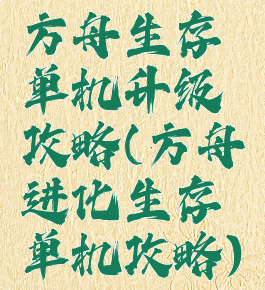 方舟生存
单机升级
攻略(方舟
进化生存
单机攻略)